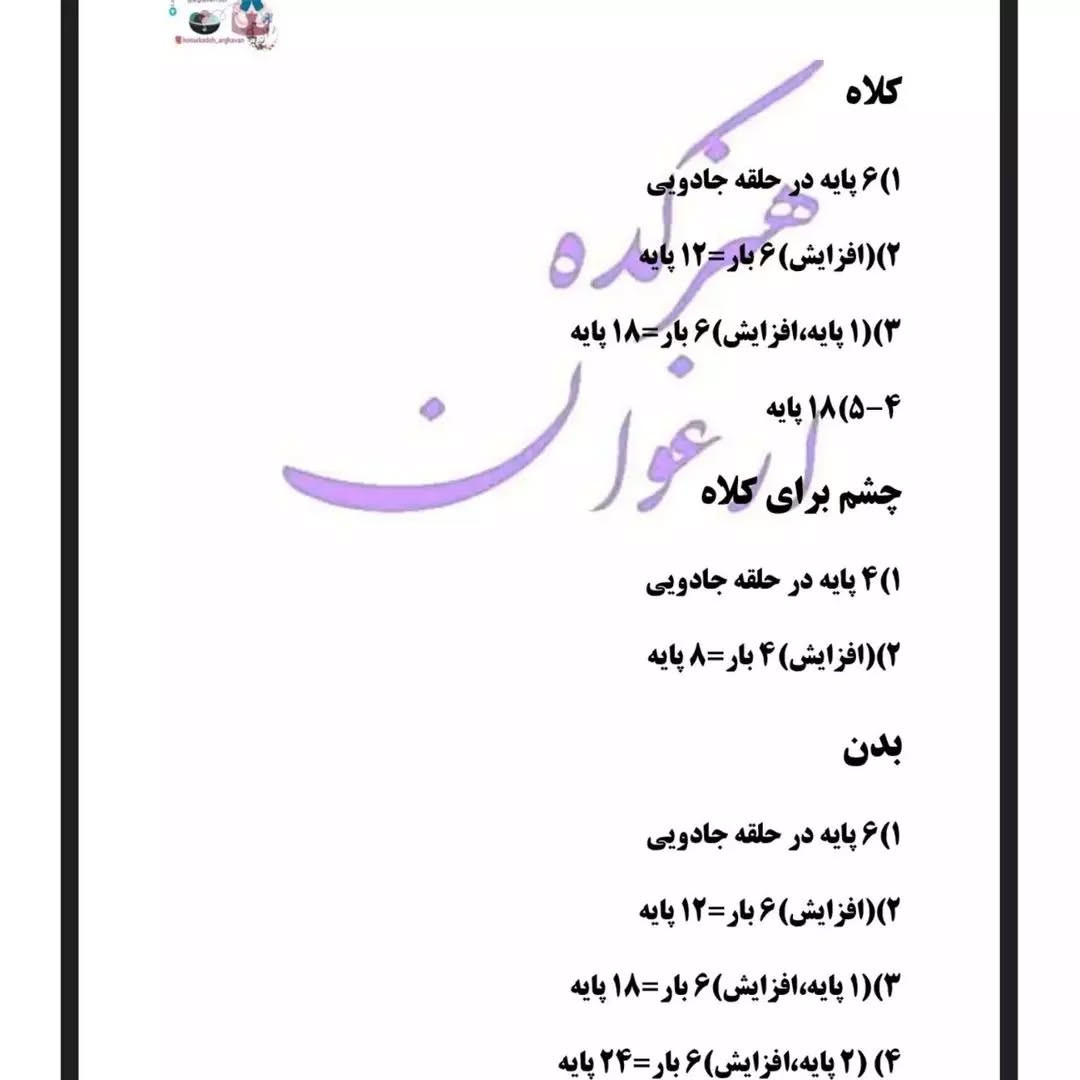 honarkadeh_arghavan
هنرکده
ارغوان
کلاه
۱)۶ پایه در حلقه جادویی
۲)(افزایش)۶ بار=۱۲ پایه
۳)(۱ پایه،افزایش)۶ بار=۱۸ پایه
۴-۵)۱۸ پایه
چشم برای کلاه
۱)۴ پایه در حلقه جادویی
۲)(افزایش)۴ بار=۸ پایه
بدن
۱)۶ پایه در حلقه جادویی
۲)(افزایش)۶ بار=۱۲ پایه
۳)(۱ پایه،افزایش)۶ بار=۱۸ پایه
۴) (۲ پایه،افزایش)۶ بار=۲۴ پایه